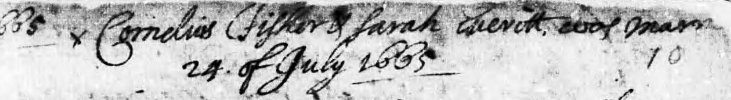 665 x Cornelius ffisher & Sarah Everitt was marr
24. of July 1665 10